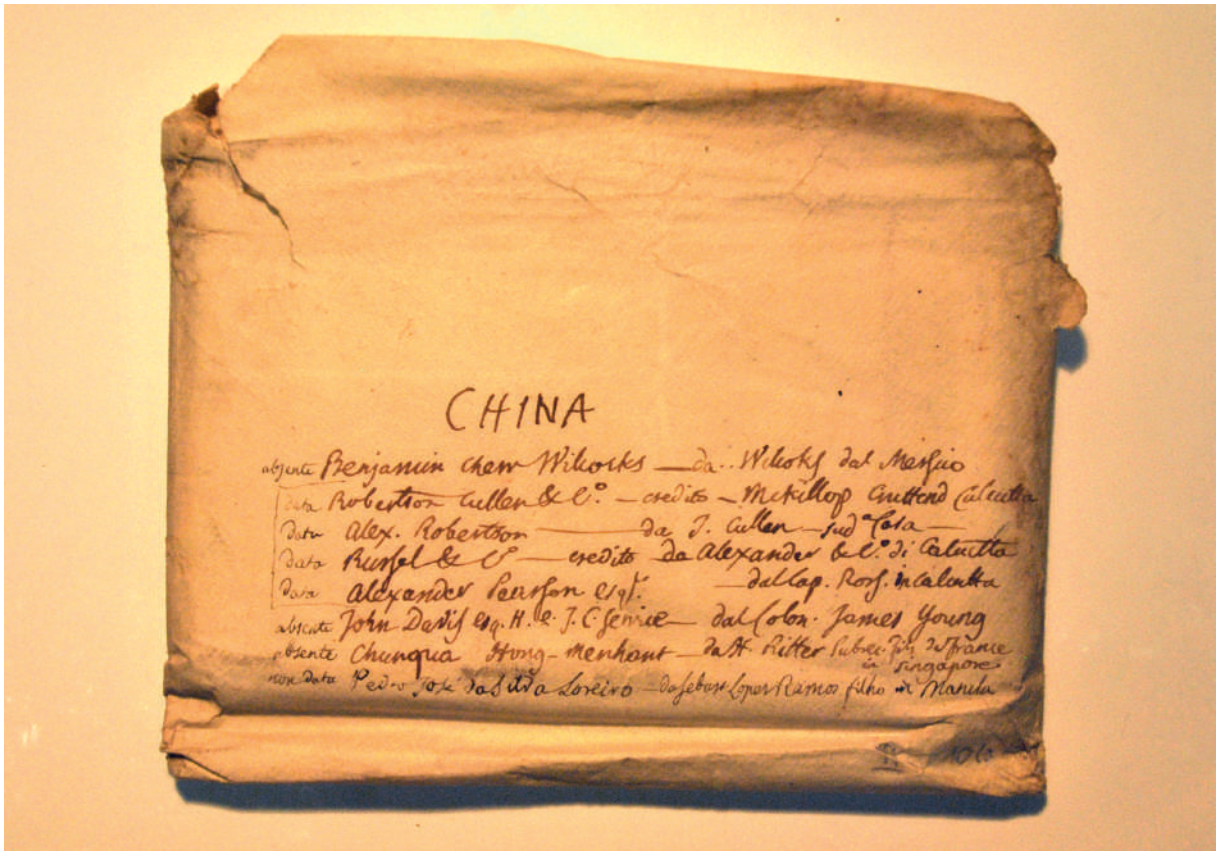 CHINA
absente Benjamin Chew Wilcocks — da Wilcoks dal Messico
data Robertson Cullen & Co — credito — McKillop Cruttend Calcutta
data Alex. Robertson — da J. Cullen — sud.a Casa —
data Russel & Co — credito da Alexander & Co. di Calcutta
data Alexander Pearson esqr. — dal Cap. Ross. in Calcutta
absente John Davis esq. H. e. J. C. Servie — dal Colon. James Young
absente Chunqua Hong-merchant — da Ritter di France
in Singapore
non data Pedro José da Silva Loreiro — da Sebast Lopes Ramos filho in Manila
106